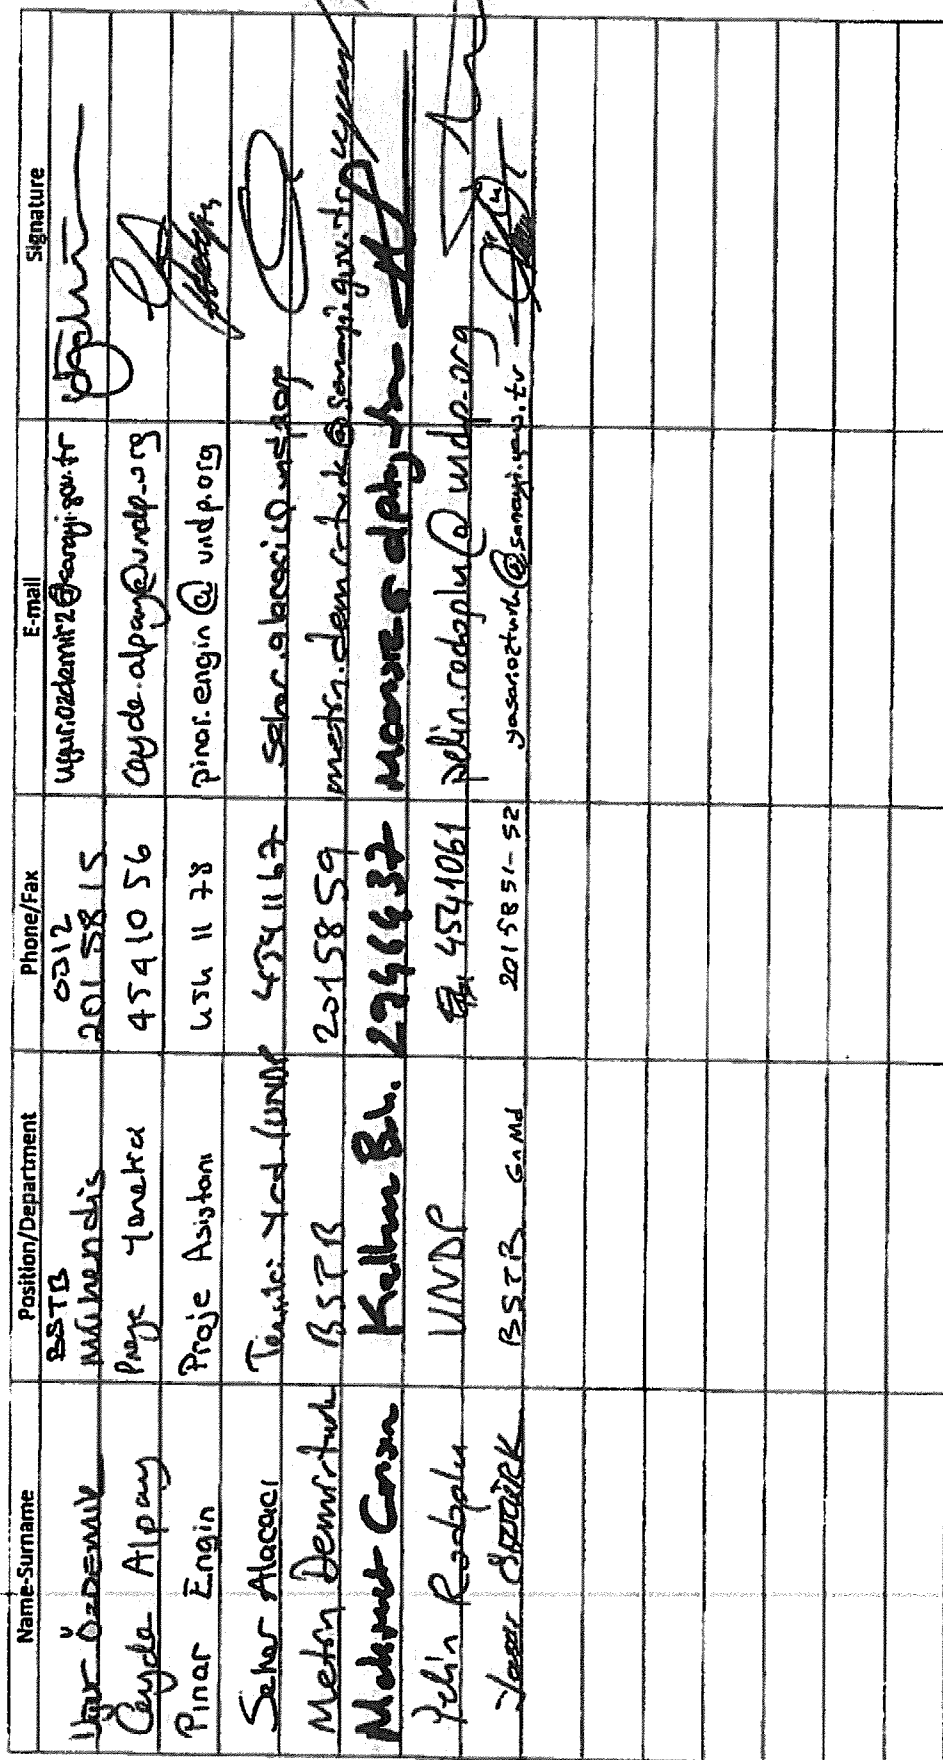 Name-Surname Position/Department Phone/Fax E-mail Signature
Uğur ÖZDEMİR BSTB Mühendis 0312 201 58 15 ugur.ozdemir2@sanayi.gov.tr
Ceyda Alpay Proje 454 10 56 ceyda.alpay@undp.org
Pinar Engin Proje Asistanı 454 11 78 pinar.engin@undp.org
Seher Alacacı Temsilci Yrd /UNDP 454 11 67
Metin Demirtürk BSTB 2015859 metin.demirturk@sanayi.gov.tr
Mehmet Kalkınma Bak. 2946437
Pelin Rodoplu UNDP 4541061 pelin.rodoplu@undp.org
Yaşar ÖZTÜRK BSTB 2015851-52 yasar.ozturk@sanayi.gov.tr